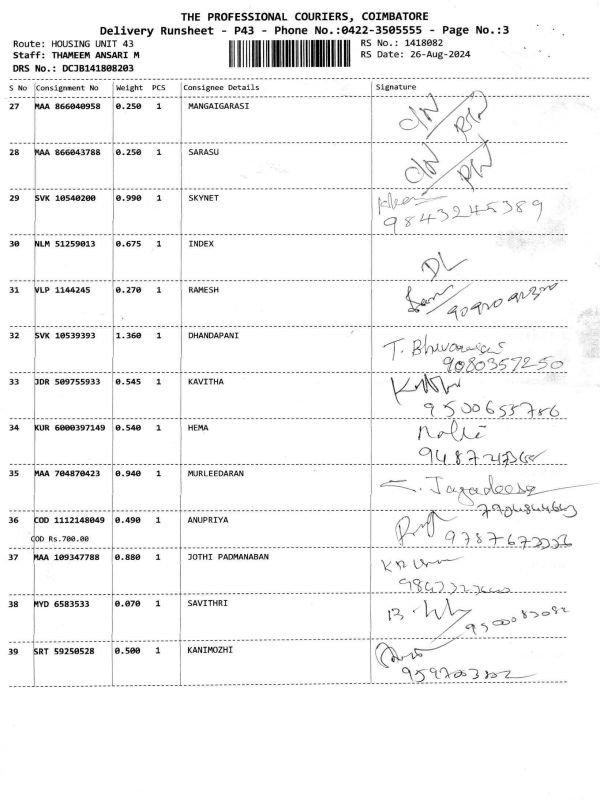 THE PROFESSIONAL COURIERS, COIMBATORE
Delivery Runsheet - P43 - Phone No.:0422-3505555 - Page No.:3
Route: HOUSING UNIT 43 RS No.: 1418082
Staff: THAMEEM ANSARI M RS Date: 26-Aug-2024
DRS No.: DCJB141808203
S No Consignment No Weight PCS Consignee Details Signature
27 MAA 866040958 0.250 1 MANGAIGARASI
28 MAA 866043788 0.250 1 SARASU
29 SVK 10540200 0.990 1 SKYNET
9843245389
30 NLM 51259013 0.675 1 INDEX
DL
31 VLP 1144245 0.270 1 RAMESH
32 SVK 10539393 1.360 1 DHANDAPANI
9080357250
33 JDR 509755933 0.545 1 KAVITHA
9500655786
34 KUR 6000397149 0.540 1 HEMA
35 MAA 704870423 0.940 1 MURLEEDARAN
36 COD 1112148049 0.490 1 ANUPRIYA
COD Rs.700.00
37 MAA 109347788 0.880 1 JOTHI PADMANABAN
38 MYD 6583533 0.070 1 SAVITHRI
9500083082
39 SRT 59250528 0.500 1 KANIMOZHI